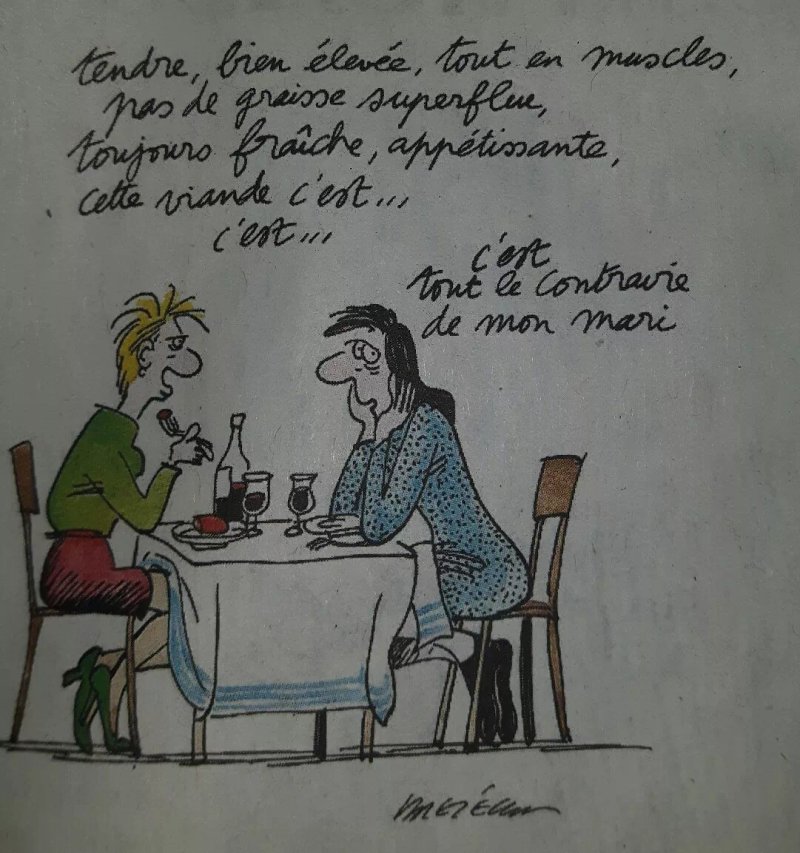 tendre, bien élevée, tout en muscles,
pas de graisse superflue,
toujours fraîche, appétissante,
cette viande c'est...
c'est...
c'est
tout le contraire
de mon mari